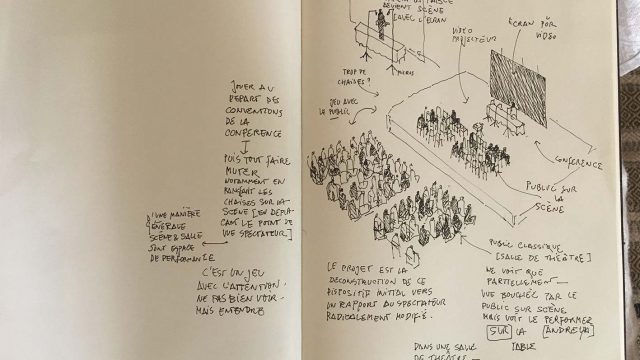 JOUER AU
DEPART DES
CONVENTIONS
DE LA
CONFERENCE
PUIS TOUT FAIRE
MUTER
NOTAMMENT EN
LES
CHAISES SUR LA
SCÈNE [EN DEPLA
CANT LE POINT DE
VUE SPECTATEUR]
D'UNE MANIÈRE
GÉNÉRALE
SCÈNE & SALLE
SONT ESPACE
DE PERFORMANCE
C'EST UN JEU
AVEC L'ATTENTION.
NE PAS BIEN VOIR.
MAIS ENTENDRE
DEVIENT SCÈNE
[AVEC L'ÉCRAN]
MICROS
TROP DE
CHAISES?
JEU AVEC
LE PUBLIC
VIDEO
PROJECTEUR
ECRAN POUR
VIDEO
CONFERENCE
PUBLIC SUR LA
SCÈNE
PUBLIC CLASSIQUE
[SALLE DE THÉÂTRE]
NE VOIT QUE
PARTIELLEMENT—
VUE BOUCHÉE PAR LE
PUBLIC SUR SCÈNE
MAIS VOIT LE PERFORMER
SUR LA [ANDREYA]
TABLE
LE PROJET EST LA
DÉCONSTRUCTION DE CE
DISPOSITIF INITIAL VERS
UN RAPPORT AU SPECTATEUR
RADICALEMENT MODIFIÉ.
DANS UNE SALLE
DE THÉÂTRE